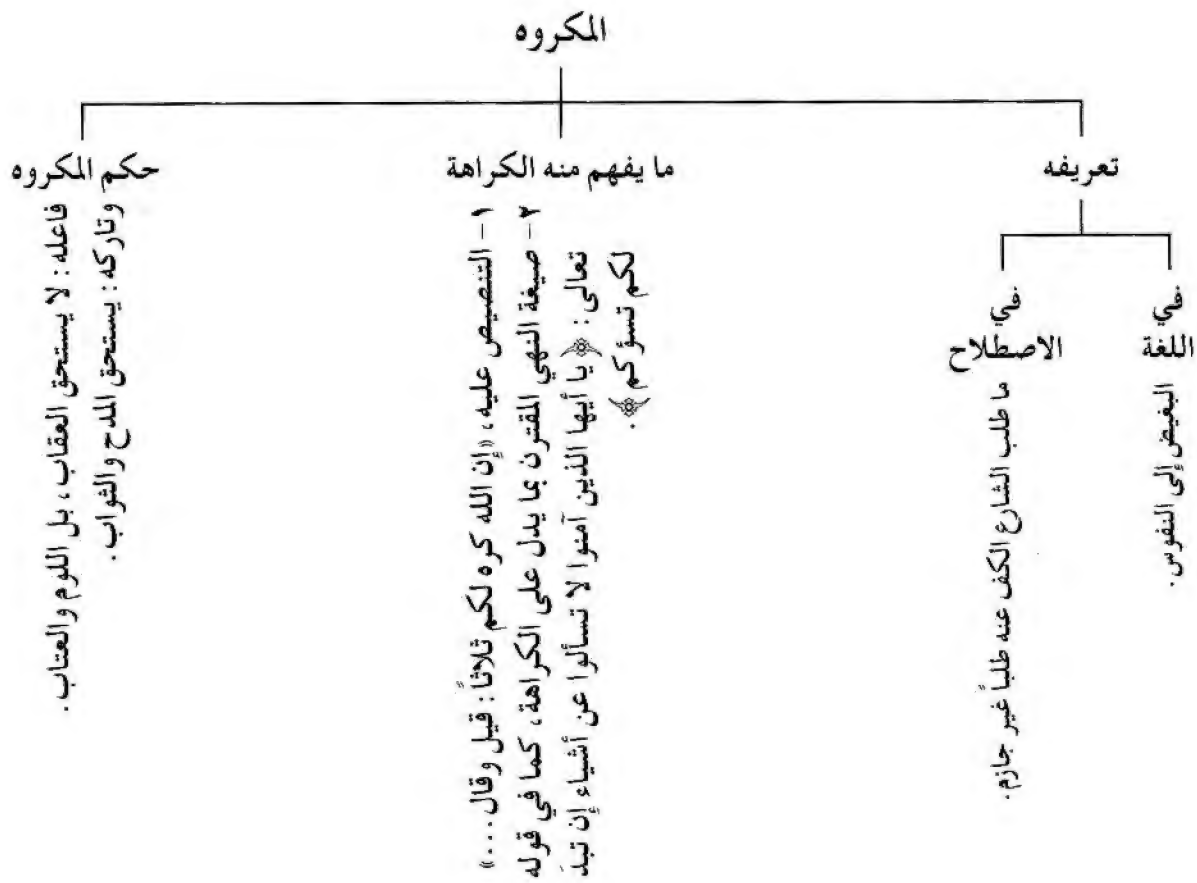 المكروه
تعريفه
في
اللغة
البغيض إلى النفوس.
في
الاصطلاح
ما طلب الشارع الكف عنه طلباً غير جازم.
ما يفهم منه الكراهة
١- التنصيص عليه، «إن الله كره لكم ثلاثاً: قيل وقال...»
٢- صيغة النهي المقترن بما يدل على الكراهة، كما في قوله
تعالى: ﴿يا أيها الذين آمنوا لا تسألوا عن أشياء إن تبدَ
لكم تسؤكم﴾.
حكم المكروه
فاعله: لا يستحق العقاب، بل اللوم والعتاب.
وتاركه: يستحق المدح والثواب.